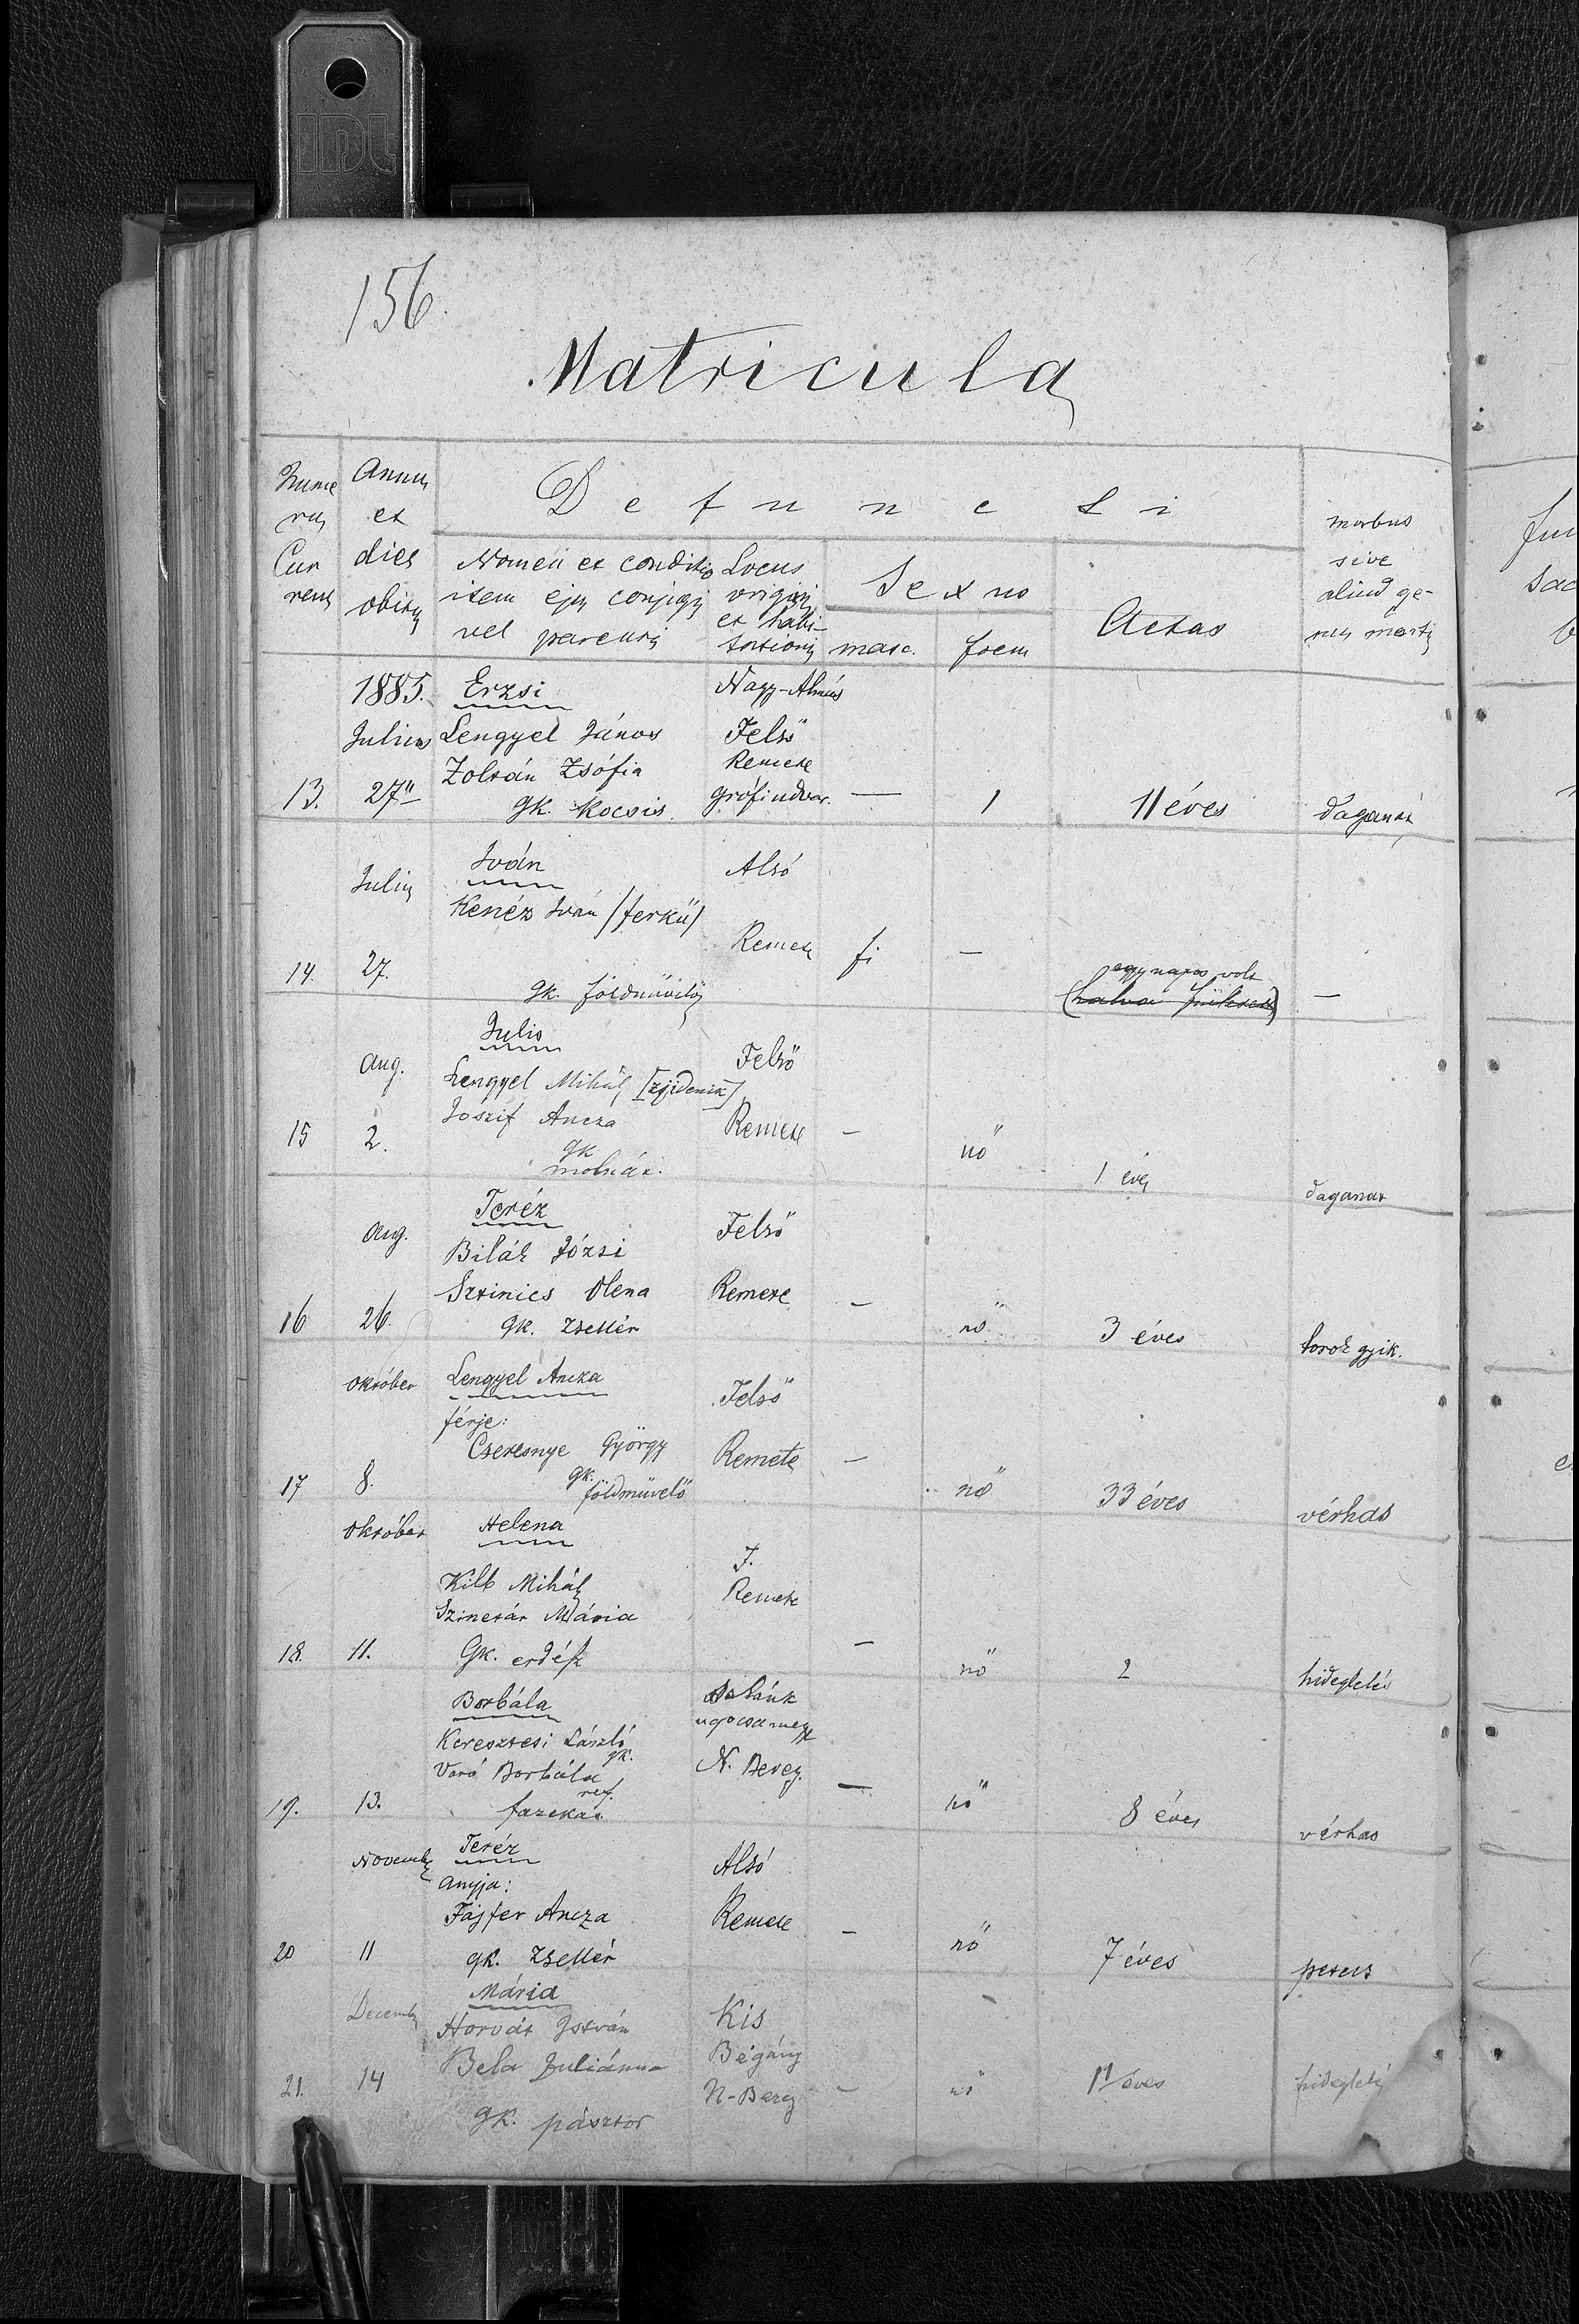 IDL
156.
Matricula
Nume
rus
Cur
rens
Annus
et
dies
obitus
Defuncti
Nomen et conditio
item ejus conjugis
vel parentis
Locus
originis
et habi-
tationis
Sexus
masc.
foem
Aetas
morbus
sive
aliud ge-
nus mortis
1885. Erzsi Nagy-Almás
Julius Lengyel János Felső
Zoltán Zsófia Remete
13. 27 gk. kocsis grófi udvar. — 1 11 éves daganat
Iván Alsó
Julius
Kenéz Iván /ferkü/
Remete fi —
egy napos volt
14. 27. gk. földmüvelő —
Julis
Aug. Felső
Lengyel Mihály [zjidenik]
Jószif Ancza Remete
15 2. gk — nő
molnár. 1 éves daganat
Teréz
Aug. Felső
Bilák Józsi
Sztinics Olena Remete
16 26. gk. zsellér — nő 3 éves torok gyik.
október Lengyel Ancza Felső
férje:
Cseresnye György Remete
17 8. gk. földmüvelő — nő 33 éves vérhas
október Helena
F.
Kilb Mihály Remete
Szinetár Mária
18. 11. Gk. erdész — nő 2 hideglelés
Borbála
ugocsa megye
Keresztesi László gk.
Varó Borbála ref. N. Bereg.
19. 13. fazekas — nő 8 éves vérhas
November Teréz Alsó
anyja:
Fájfer Ancza Remete
20 11 gk. zsellér — nő 7 éves
Mária
December Horvát István Kis
Bela Juliánna Bégány
21. 14 N-Bereg — nő éves hideglelés
gk. pásztor